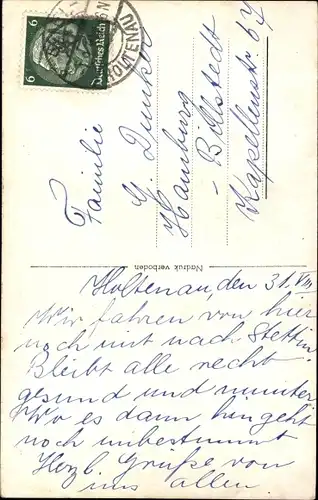 6
Deutsches Reich
HOLTENAU
Familie
G. Dunker
Hamburg
- Billstedt
Kapellenstr. 67
Nadruk verboden
Holtenau, den 31. VIII
Wir fahren von hier
noch mit nach Stettin.
Bleibt alle recht
gesund und munter
Wo es dann hingeht
noch unbestimmt
Herzl. Grüße von
uns allen.